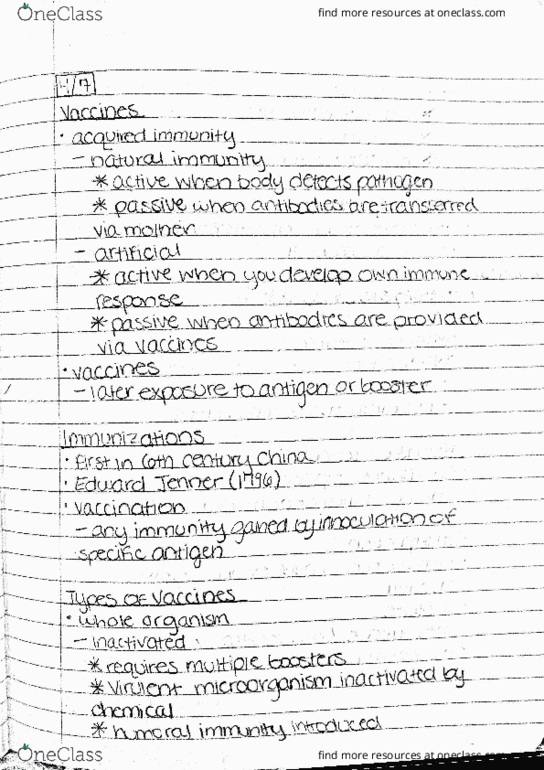 OneClass
find more resources at oneclass.com
4/7
Vaccines
• acquired immunity
- natural immunity
* active when body detects pathogen
* passive when antibodies are transferred
via mother
- artificial
* active when you develop own immune
response
* passive when antibodies are provided
via vaccines
• vaccines
- later exposure to antigen or booster
Immunizations
• first in 6th century China
• Edward Jenner (1796)
• vaccination
- any immunity gained by innoculation of
specific antigen
Types of Vaccines
• whole organism
- inactivated
* requires multiple boosters
* virulent microorganism inactivated by
chemical
* humoral immunity introduced
OneClass
find more resources at oneclass.com